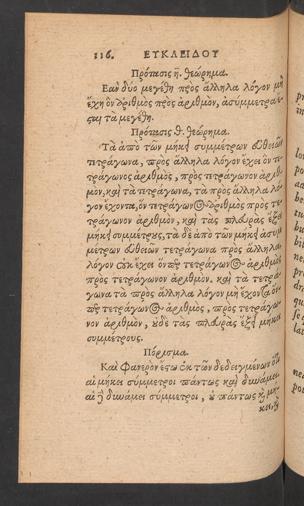 116. ΕΥΚΛΕΙΔΟΥ
Πρότασις η. θεώρημα.
Εαν δύο μεγέθη πρὸς ἄλληλα λόγον μὴ
ἔχη ὃν ἀριθμὸς πρὸς ἀριθμὸν, ἀσύμμετρα ἔ-
σται τὰ μεγέθη.
Πρότασις θ. θεώρημα.
Τὰ ἀπὸ τῶν μήκει συμμέτρων εὐθειῶν
τετράγωνα, πρὸς ἄλληλα λόγον ἔχει ὃν τε-
τράγωνος ἀριθμὸς, πρὸς τετράγωνον ἀριθ-
μὸν, καὶ τὰ τετράγωνα, τὰ πρὸς ἄλληλα λό-
γον ἔχοντα, ὃν τετράγωνος ἀριθμὸς πρὸς τε-
τράγωνον ἀριθμὸν, καὶ τὰς πλευρὰς ἕξει
μήκει συμμέτρους, τὰ δὲ ἀπὸ τῶν μήκει ἀσυμ-
μέτρων εὐθειῶν τετράγωνα πρὸς ἄλληλα
λόγον οὐκ ἔχει ὅνπερ τετράγωνος ἀριθμὸς
πρὸς τετράγωνον ἀριθμὸν. καὶ τὰ τετρά-
γωνα τὰ πρὸς ἄλληλα λόγον μὴ ἔχοντα ὅν-
περ τετράγωνος ἀριθμὸς, πρὸς τετράγω-
νον ἀριθμὸν, οὐδὲ τὰς πλευρὰς ἕξει μήκει
συμμέτρους.
Πόρισμα.
Καὶ φανερὸν ἔσω ἐκ τῶν δεδειγμένων ὅτι
αἱ μήκει σύμμετροι πάντως καὶ δυνάμει.
αἱ δὲ δυνάμει σύμμετροι, οὐ πάντως καὶ μή-
κει,